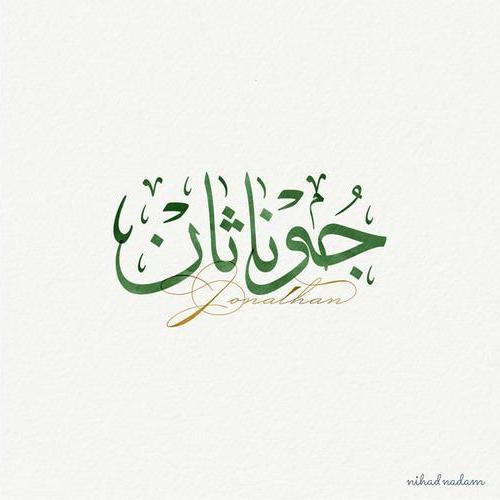 جُوناثان
Jonathan
nihadnadam